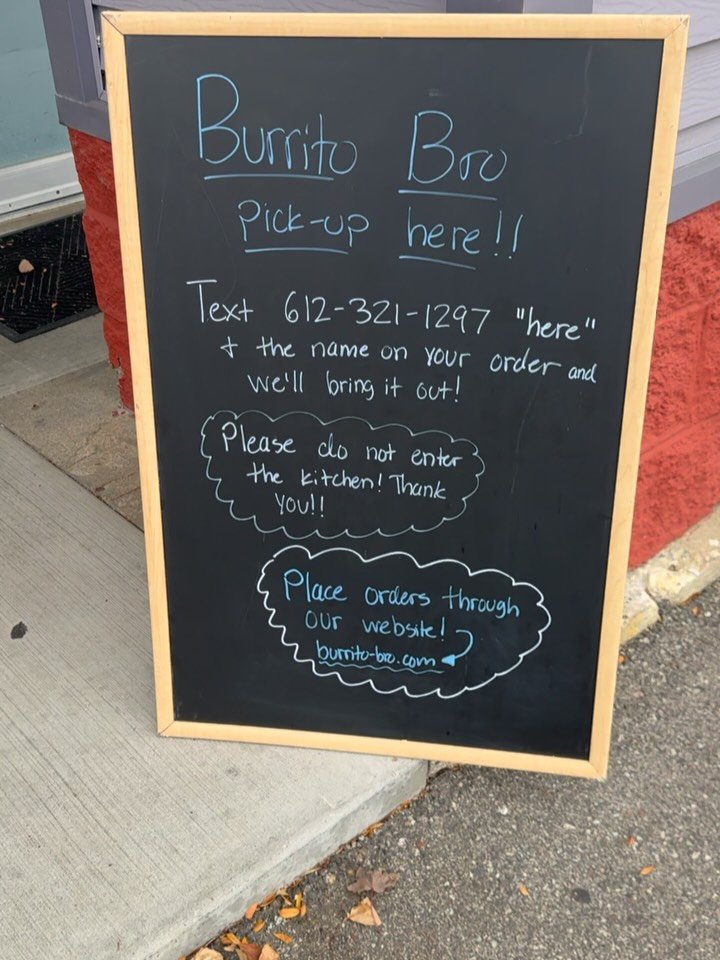 Burrito Bro
Pick-up here!!
Text 612-321-1297 "here"
+ the name on your order and
we'll bring it out!
Please do not enter
the kitchen! Thank
you!!
Place orders through
our website!
burrito-bro.com